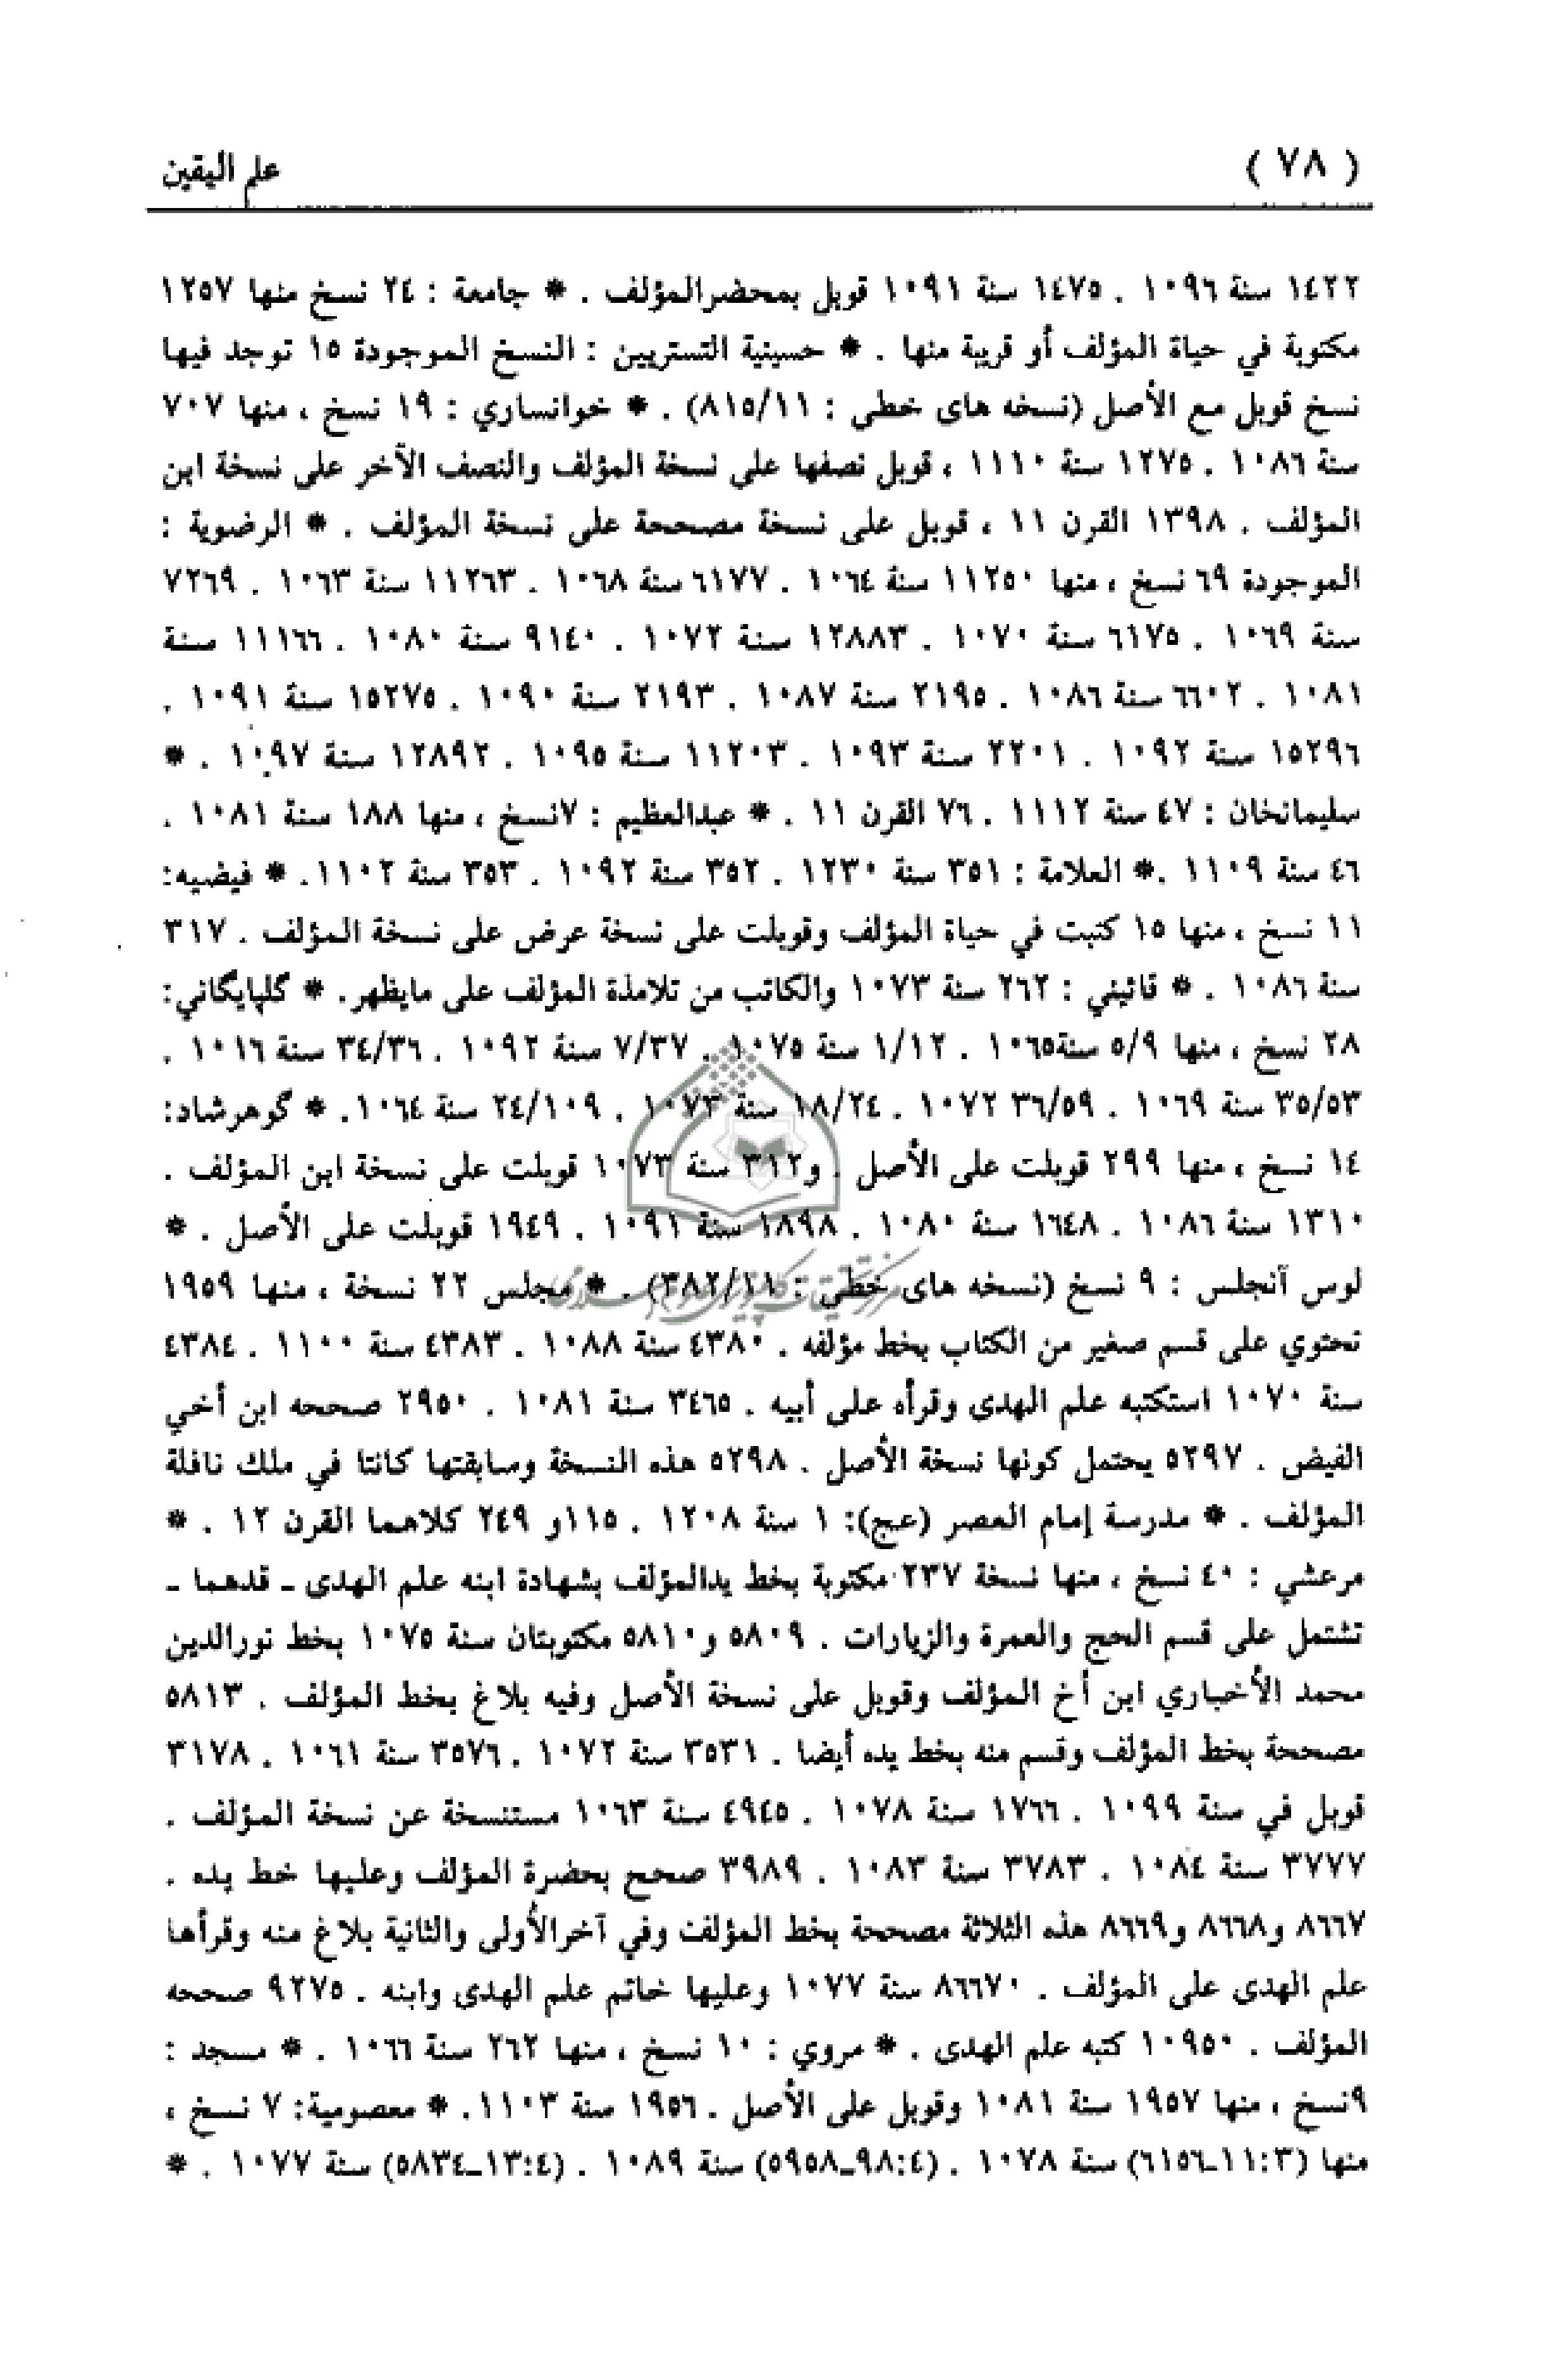 ( ٧٨ )
علم اليقين
١٤٢٢ سنة ١٠٩٦ . ١٤٧٥ سنة ١٠٩١ قوبل بمحضرالمؤلف . * جامعة : ٢٤ نسخ منها ١٢٥٧
مكتوبة في حياة المؤلف أو قريبة منها . * حسينية التستريين : النسخ الموجودة ١٥ توجد فيها
نسخ قوبل مع الأصل (نسخه های خطی : ٨١٥/١١) . * خوانساري : ١٩ نسخ ، منها ٧٠٧
سنة ١٠٨٦ . ١٢٧٥ سنة ١١١٠ ، قوبل نصفها على نسخة المؤلف والنصف الآخر على نسخة ابن
المؤلف . ١٣٩٨ القرن ١١ ، قوبل على نسخة مصححة على نسخة المؤلف . * الرضوية :
الموجودة ٦٩ نسخ ، منها ١١٢٥٠ سنة ١٠٦٤ . ٦١٧٧ سنة ١٠٦٨ . ١١٢٦٣ سنة ١٠٦٣ . ٧٢٦٩
سنة ١٠٦٩ . ٦١٧٥ سنة ١٠٧٠ . ١٢٨٨٣ سنة ١٠٧٢ . ٩١٤٠ سنة ١٠٨٠ . ١١١٦٦ سنة
١٠٨١ . ٦٦٠٢ سنة ١٠٨٦ . ٢١٩٥ سنة ١٠٨٧ . ٢١٩٣ سنة ١٠٩٠ . ١٥٢٧٥ سنة ١٠٩١ .
١٥٢٩٦ سنة ١٠٩٢ . ٢٢٠١ سنة ١٠٩٣ . ١١٢٠٣ سنة ١٠٩٥ . ١٢٨٩٢ سنة ١٠٩٧ . *
سليمانخان : ٤٧ سنة ١١١٢ . ٧٦ القرن ١١ . * عبدالعظيم : ٧نسخ ، منها ١٨٨ سنة ١٠٨١ .
٤٦ سنة ١١٠٩ .* العلامة : ٣٥١ سنة ١٢٣٠ . ٣٥٢ سنة ١٠٩٢ . ٣٥٣ سنة ١١٠٢. * فيضيه:
١١ نسخ ، منها ١٥ كتبت في حياة المؤلف وقوبلت على نسخة عرض على نسخة المؤلف . ٣١٧
سنة ١٠٨٦ . * قائيني : ٢٦٢ سنة ١٠٧٣ والكاتب من تلامذة المؤلف على مايظهر. * گلپايگاني:
٢٨ نسخ ، منها ٥/٩ سنة١٠٦٥ . ١/١٢ سنة ١٠٧٥ . ٧/٣٧ سنة ١٠٩٢ . ٣٤/٣٦ سنة ١٠١٦ .
٣٥/٥٣ سنة ١٠٦٩ . ٣٦/٥٩ ١٠٧٢ . ١٨/٢٤ سنة ١٠٧٣ . ٢٤/١٠٩ سنة ١٠٦٤. * گوهرشاد:
١٤ نسخ ، منها ٢٩٩ قوبلت على الأصل . و٣١٢ سنة ١٠٧٣ قوبلت على نسخة ابن المؤلف .
١٣١٠ سنة ١٠٨٦ . ١٦٤٨ سنة ١٠٨٠ . ١٨٩٨ سنة ١٠٩١ . ١٩٤٩ قوبلت على الأصل . *
لوس آنجلس : ٩ نسخ (نسخه های خطی : ٣٨٢/١١) . * مجلس ٢٢ نسخة ، منها ١٩٥٩
تحتوي على قسم صغير من الكتاب بخط مؤلفه . ٤٣٨٠ سنة ١٠٨٨ . ٤٣٨٣ سنة ١١٠٠ . ٤٣٨٤
سنة ١٠٧٠ استكتبه علم الهدى وقرأه على أبيه . ٣٤٦٥ سنة ١٠٨١ . ٢٩٥٠ صححه ابن أخي
الفيض . ٥٢٩٧ يحتمل كونها نسخة الأصل . ٥٢٩٨ هذه النسخة وسابقتها كانتا في ملك نافلة
المؤلف . * مدرسة إمام العصر (عج): ١ سنة ١٢٠٨ . ١١٥و ٢٤٩ كلاهما القرن ١٢ . *
مرعشي : ٤٠ نسخ ، منها نسخة ٢٣٧ مكتوبة بخط يدالمؤلف بشهادة ابنه علم الهدى ـ قدهما ـ
تشتمل على قسم الحج والعمرة والزيارات . ٥٨٠٩ و٥٨١٠ مكتوبتان سنة ١٠٧٥ بخط نورالدين
محمد الأخباري ابن أخ المؤلف وقوبل على نسخة الأصل وفيه بلاغ بخط المؤلف . ٥٨١٣
مصححة بخط المؤلف وقسم منه بخط يده أيضا . ٣٥٣١ سنة ١٠٧٢ . ٣٥٧٦ سنة ١٠٦١ . ٣١٧٨
قوبل في سنة ١٠٩٩ . ١٧٦٦ سنة ١٠٧٨ . ٤٩٤٥ سنة ١٠٦٣ مستنسخة عن نسخة المؤلف .
٣٧٧٧ سنة ١٠٨٤ . ٣٧٨٣ سنة ١٠٨٣ . ٣٩٨٩ صحح بحضرة المؤلف وعليها خط يده .
٨٦٦٧ و٨٦٦٨ و٨٦٦٩ هذه الثلاثة مصححة بخط المؤلف وفي آخرالأولى والثانية بلاغ منه وقرأها
علم الهدى على المؤلف . ٨٦٦٧٠ سنة ١٠٧٧ وعليها خاتم علم الهدى وابنه . ٩٢٧٥ صححه
المؤلف . ١٠٩٥٠ كتبه علم الهدى . * مروي : ١٠ نسخ ، منها ٢٦٢ سنة ١٠٦٦ . * مسجد :
٩نسخ ، منها ١٩٥٧ سنة ١٠٨١ وقوبل على الأصل . ١٩٥٦ سنة ١١٠٣. * معصومية: ٧ نسخ ،
منها (١١:٣ـ٦١٥٦) سنة ١٠٧٨ . (٩٨:٤ـ٥٩٥٨) سنة ١٠٨٩ . (١٣:٤ـ٥٨٣٤) سنة ١٠٧٧ . *